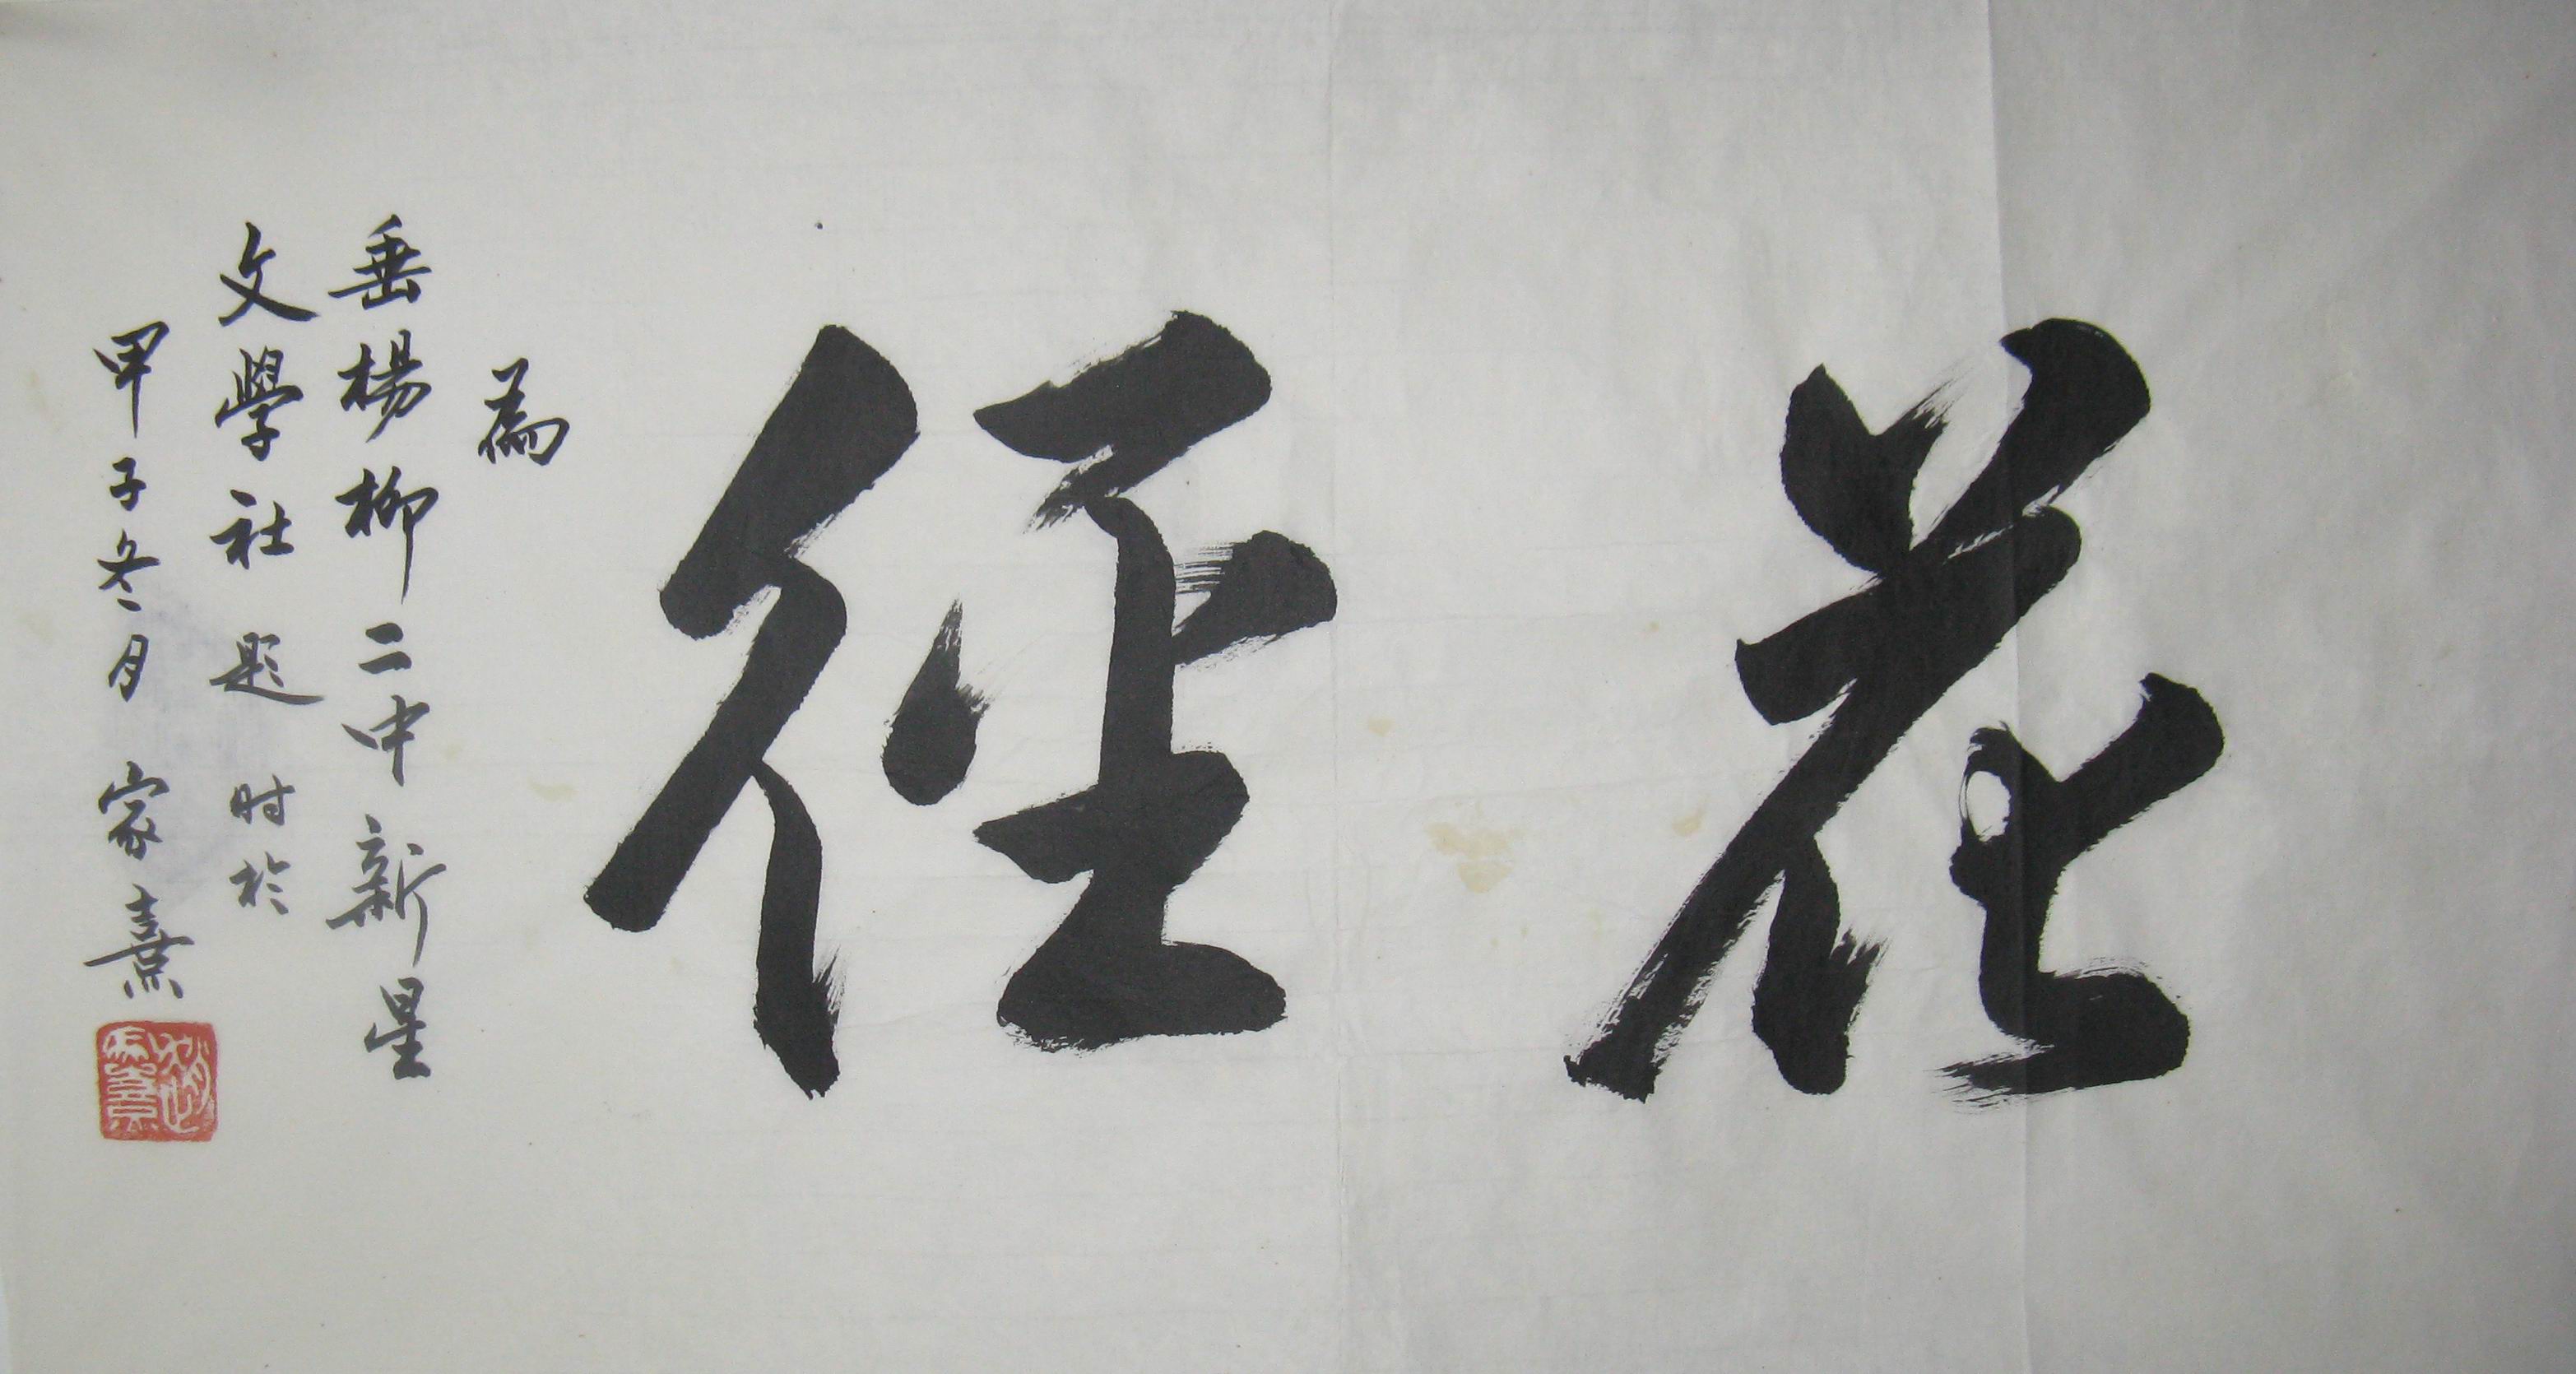 花径
為
垂楊柳二中新星
文學社題时於
甲子冬月 家熹